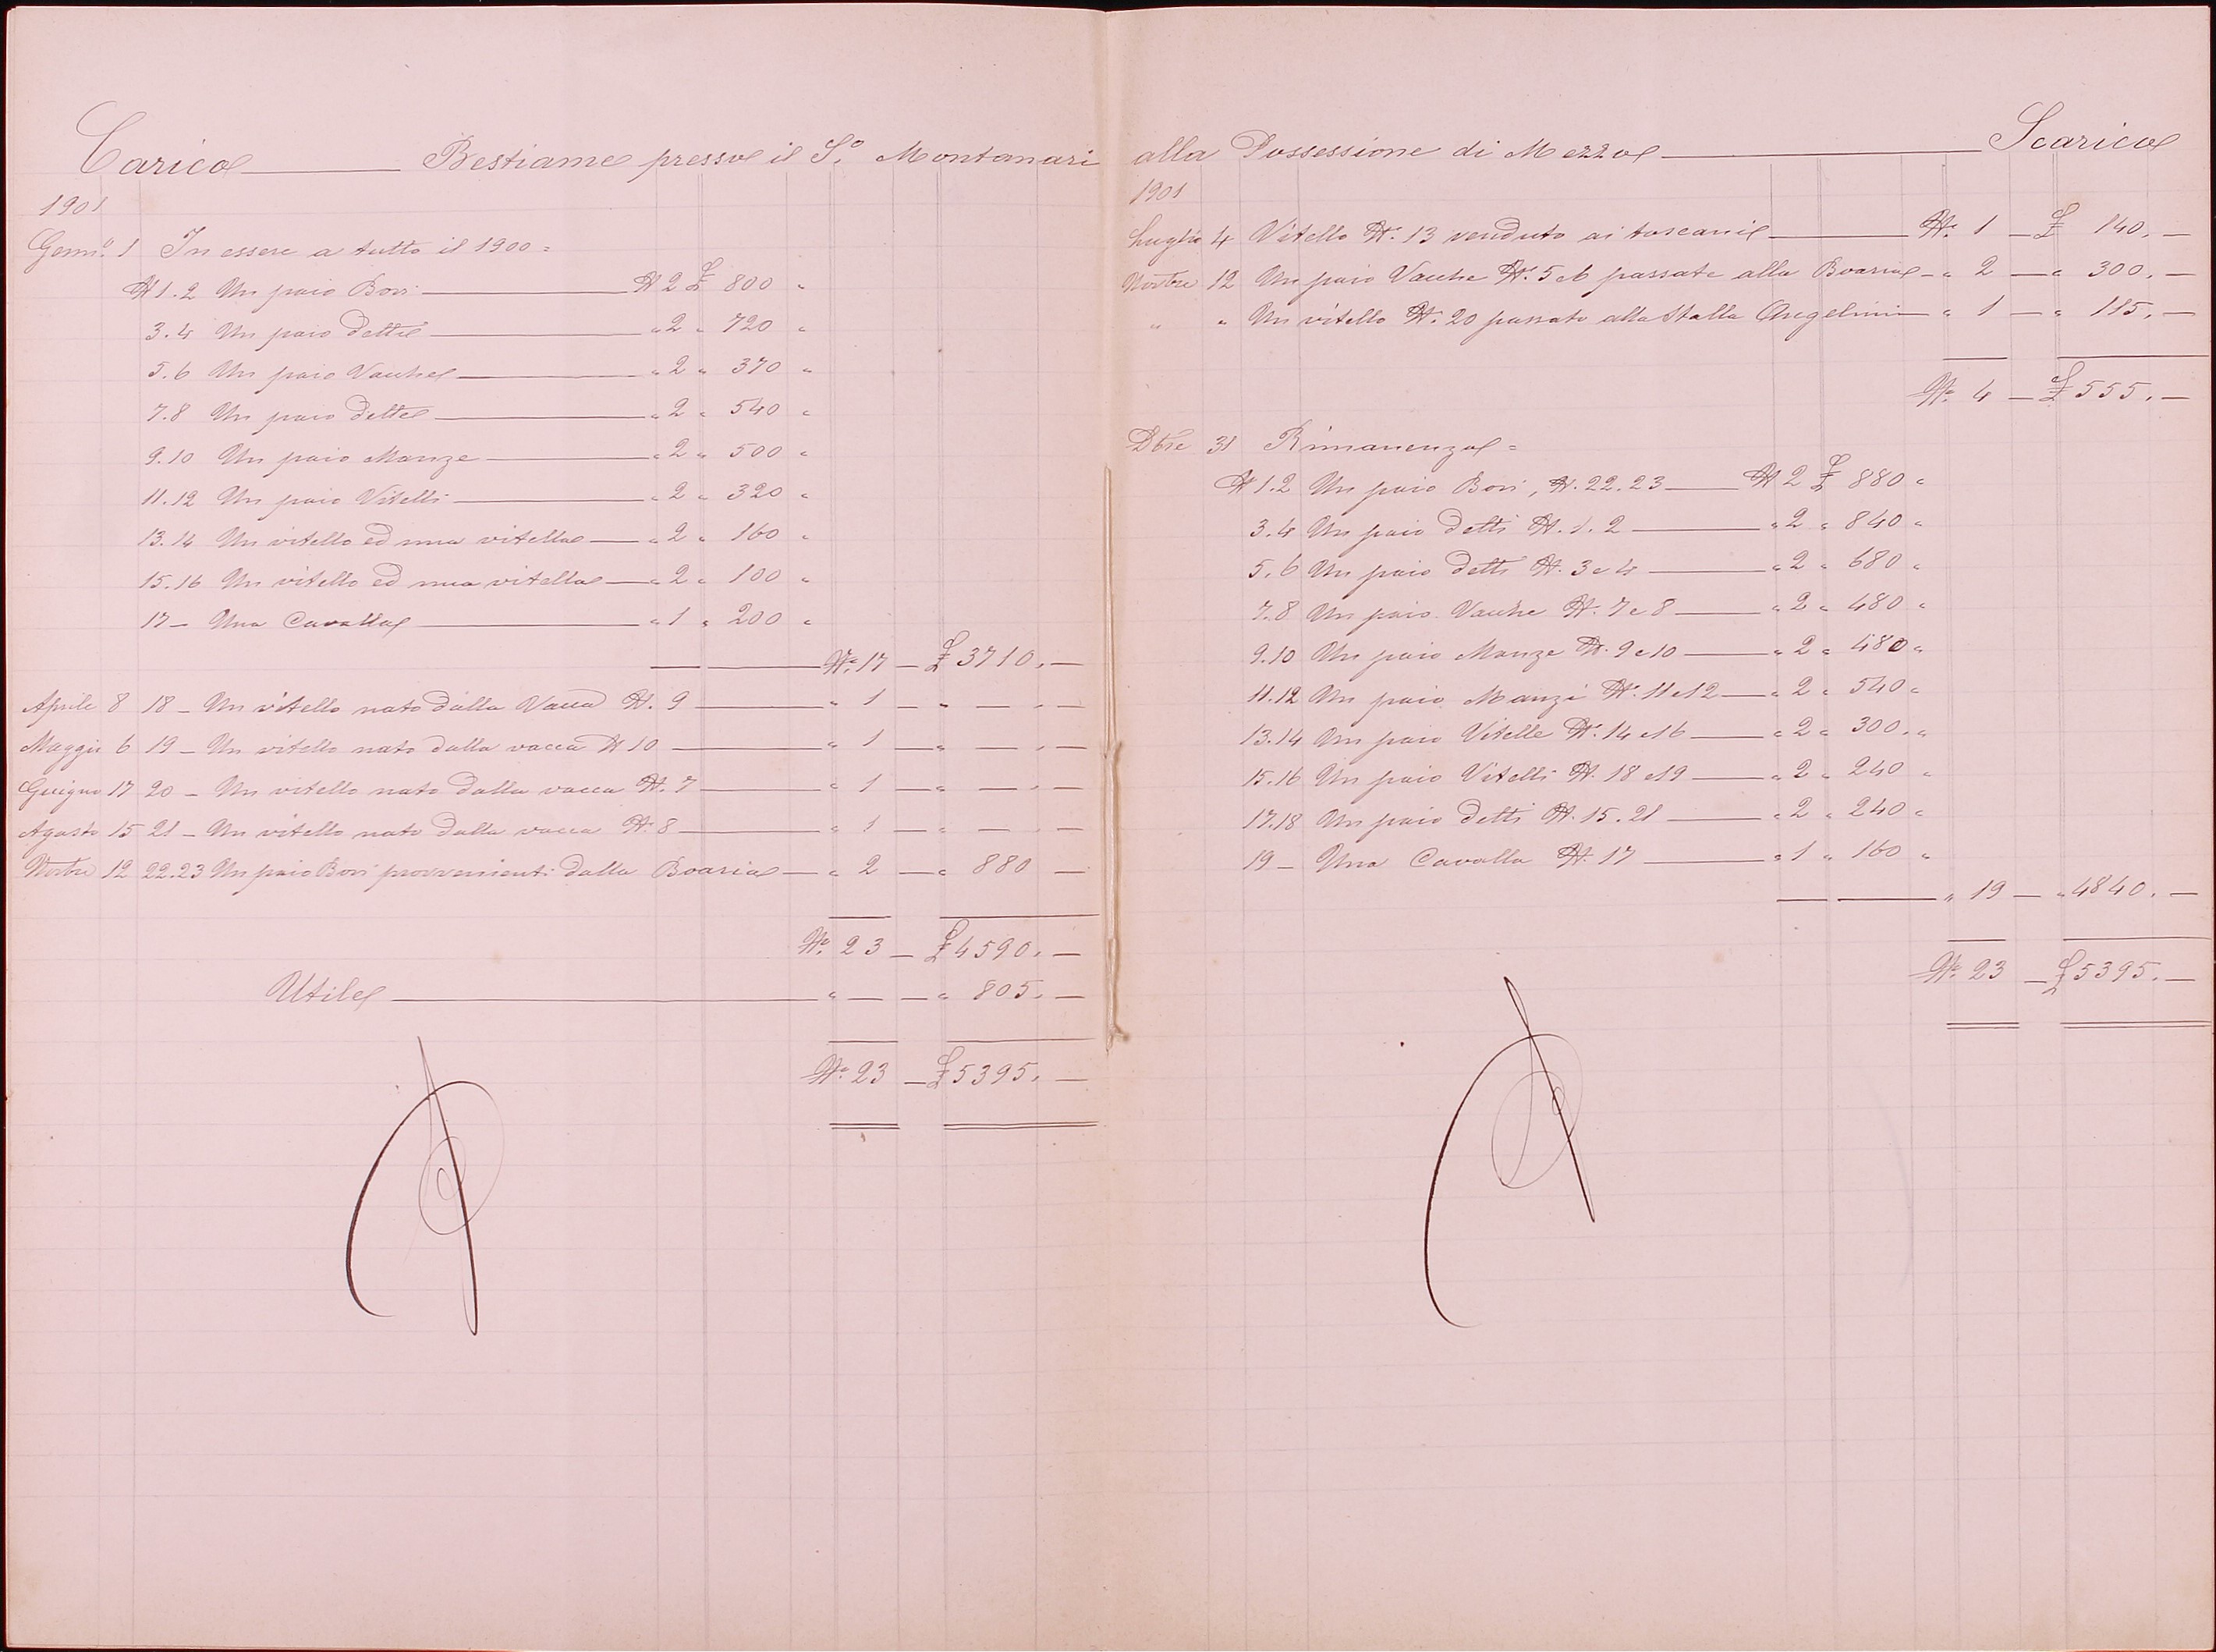 Carico Bestiame presso il S.o Montanari
1901
Genn.o 1 In essere a tutto il 1900 =
N 1.2 Un paio Bovi N 2 £ 800 "
3.4 Un paio detti " 2 " 720 "
5.6 Un paio Vacche " 2 " 370 "
7.8 Un paio dette " 2 " 540 "
9.10 Un paio Manze " 2 " 500 "
11.12 Un paio Vitelli " 2 " 320 "
13.14 Un vitello ed una vitella " 2 " 160 "
15.16 Un vitello ed una vitella " 2 " 100 "
17 – Una Cavalla " 1 " 200 "
N.o 17 – £ 3710. –
Aprile 8 18 – Un vitello nato dalla Vacca N. 9 " 1 – " – . –
Maggio 6 19 – Un vitello nato dalla vacca N 10 " 1 – " – . –
Giugno 17 20 – Un vitello nato dalla vacca N. 7 " 1 – " – . –
Agosto 15 21 – Un vitello nato dalla vacca N. 8 " 1 – " – . –
Novbre 12 22.23 Un paio Bovi provenienti dalla Boaria " 2 – " 880 –
N.o 23 – £ 4590. –
Utile " – – " 805. –
N.o 23 – £ 5395. –
alla Possessione di Mezzo Scarico
1901
Luglio 4 Vitello N.o 13 venduto ai toscani N. 1 – £ 140. –
Novbre 12 Un paio Vacche N. 5 e 6 passate alla Boaria " 2 – " 300. –
" " Un vitello N. 20 passato alla Stalla Angelini " 1 – " 115. –
N.o 4 – £ 555. –
Dbre 31 Rimanenza =
N 1.2 Un paio Bovi, N. 22.23 N 2 £ 880 "
3.4 Un paio detti N. 1. 2 " 2 " 840 "
5.6 Un paio detti N. 3 e 4 " 2 " 680 "
7.8 Un paio Vacche N. 7 e 8 " 2 " 480 "
9.10 Un paio Manze N. 9 e 10 " 2 " 480 "
11.12 Un paio Manzi N.o 11 e 12 " 2 " 540 "
13.14 Un paio Vitelle N.o 14 e 16 " 2 " 300. "
15.16 Un paio Vitelli N. 18 e 19 " 2 " 240 "
17.18 Un paio detti N. 15. 21 " 2 " 240 "
19 – Una Cavalla N. 17 " 1 " 160 "
" 19 – " 4840. –
N.o 23 – £ 5395. –